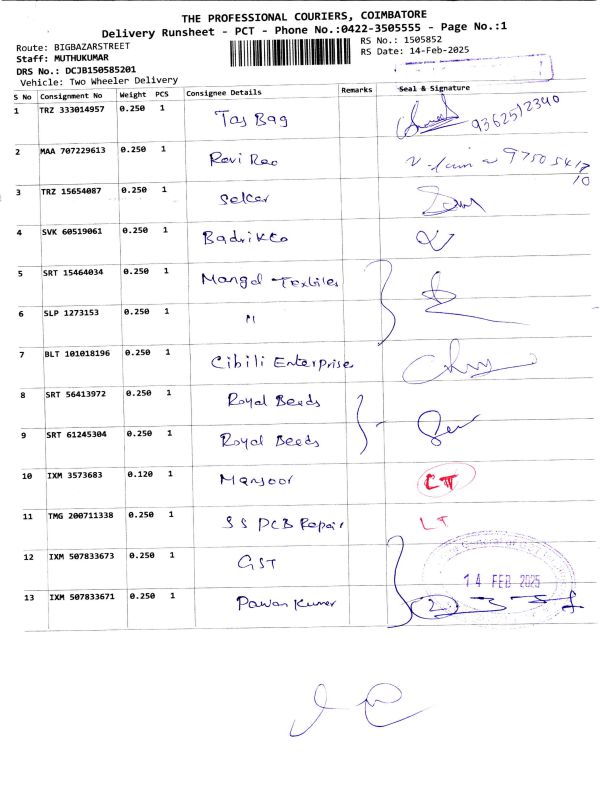 THE PROFESSIONAL COURIERS, COIMBATORE
Delivery Runsheet - PCT - Phone No.:0422-3505555 - Page No.:1
Route: BIGBAZARSTREET
RS No.: 1505852
Staff: MUTHUKUMAR
RS Date: 14-Feb-2025
DRS No.: DCJB150585201
Vehicle: Two Wheeler Delivery
S No Consignment No Weight PCS Consignee Details Remarks Seal & Signature
1 TRZ 333014957 0.250 1 Tas Bag 9362512340
2 MAA 707229613 0.250 1 Ravi Rao
3 TRZ 15654087 0.250 1 Selcer
4 SVK 60519061 0.250 1 Badrikko
5 SRT 15464034 0.250 1 Mangal Textiles
6 SLP 1273153 0.250 1 M
7 BLT 101018196 0.250 1 Cibili Enterprises
8 SRT 56413972 0.250 1 Royal Beeds
9 SRT 61245304 0.250 1 Royal Beeds
10 IXM 3573683 0.120 1 Mansoor LT
11 TMG 200711338 0.250 1 SS PCB Repair LT
12 IXM 507833673 0.250 1 GST
14 FEB 2025
13 IXM 507833671 0.250 1 Pawan Kumar 2